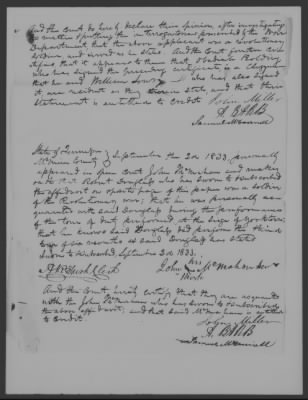 And the Court do hereby declare their opinion, after investigating
the matter & putting the interrogatories prescribed by the War
Department that the above applicant was a revolutionary
soldier and served as he states. And the Court further cer-
tifies that it appears to them that Obadiah Bolding
who has signed the preceding certificate is a clergyman
that he and William Lowry who has also signed
it, are resident in the County & state, and that their
statement is entitled to credit
John Miller
A BARB
Samuel McConnell
State of Tennessee
McMinn County
September the 3rd 1833, personally
appeared in open Court John McMahan and makes
oath that Robert Douglass who has sworn to & subscribed
the affidavit on part of this paper was a soldier
of the Revolutionary war; that he was personally ac-
quainted with said Douglass during the performance
of the tour of duty performed at the siege of York town;
that he knows said Douglass did perform the
tour of six months as said Douglass has stated
Sworn to & subscribed, September 3d 1833.
Clerk
John his McMahan
mark
And the Court hereby certify that they are acquainted
with the John McMahan who has sworn to & subscribed
the above affidavit, and that said McMahan is entitled
to credit.
John Miller
A. BARB
Samuel McConnell